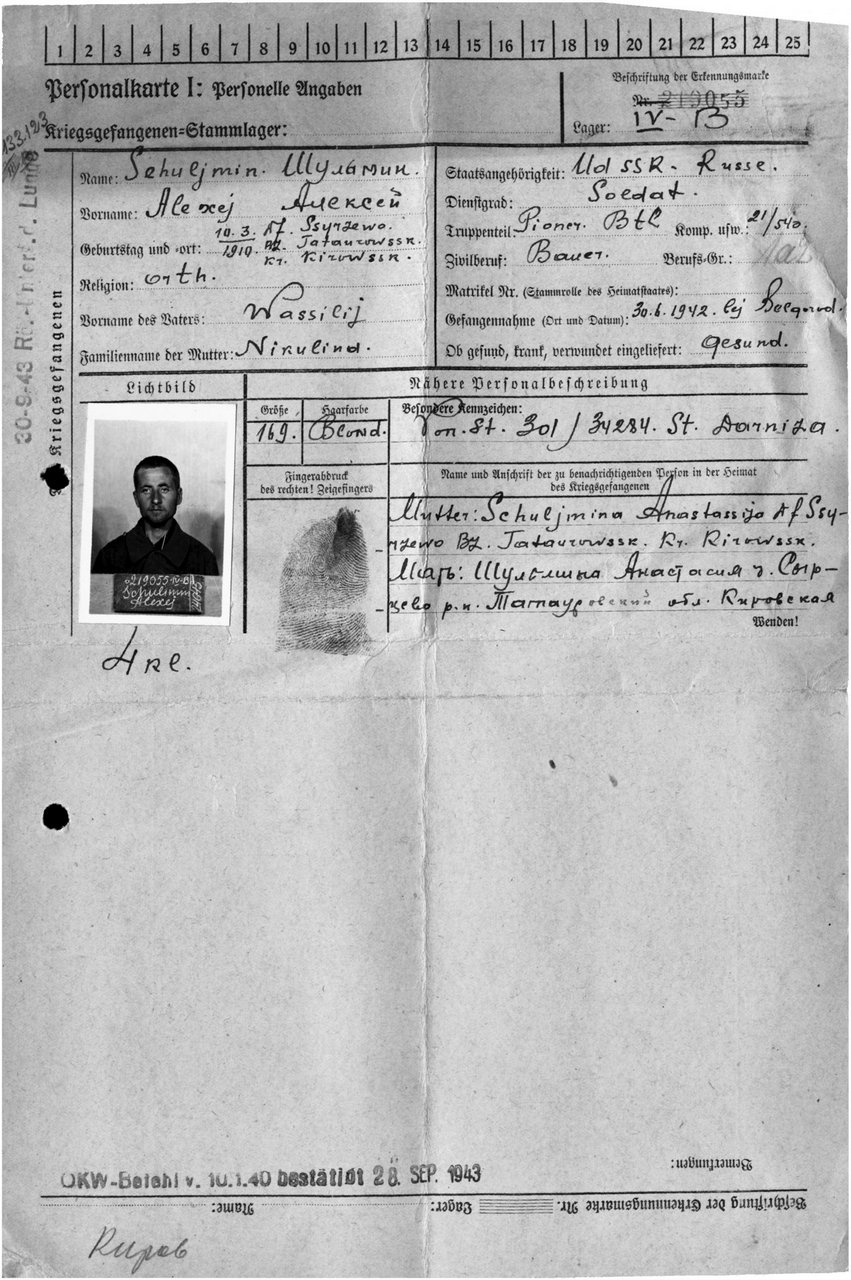 1 2 3 4 5 6 7 8 9 10 11 12 13 14 15 16 17 18 19 20 21 22 23 24 25
Personalkarte I: Personelle Angaben
Beschriftung der Erkennungsmarke
Nr. 219055
Kriegsgefangenen=Stammlager:
Lager: IV-B
Name: Schuljmin. Шульмин.
Vorname: Alexej Алексей
Geburtstag und =ort: 10.3. 1910. Df. Ssyrzewo.
Bz. Tataurowssk.
Kr. Kirowssk.
Religion: orth.
Vorname des Vaters: Wassilij
Familienname der Mutter: Nikulina.
Staatsangehörigkeit: UdSSR. Russe.
Dienstgrad: Soldat.
Truppenteil: Pioner. Btl Komp. usw.: 21/540.
Zivilberuf: Bauer. Berufs-Gr.:
Matrikel Nr. (Stammrolle des Heimatstaates):
Gefangennahme (Ort und Datum): 30.6.1942. bej Belgorod.
Ob gesund, krank, verwundet eingeliefert: gesund.
Kriegsgefangenen
30-9-43
Lichtbild
Nähere Personalbeschreibung
Größe Haarfarbe Besondere Kennzeichen:
169. Blond. Von. St. 301/34284. St. Darniza.
Fingerabdruck
des rechten! Zeigefingers
Name und Anschrift der zu benachrichtigenden Person in der Heimat
des Kriegsgefangenen
Mutter: Schuljmina Anastassija Df Ssy-
rzewo Bz. Tataurowssk. Kr. Kirowssk.
Мать: Шульмина Анастасия д. Сыр-
цево р.н. Татауровский обл. Кировская
Wenden!
219055 IV-B
Schuljmin
Alexej
4 kl.
Bemerkungen:
OKW-Befehl v. 10.1.40 bestätigt 28. SEP. 1943
Beschriftung der Erkennungsmarke Nr. Lager: Name:
Киров